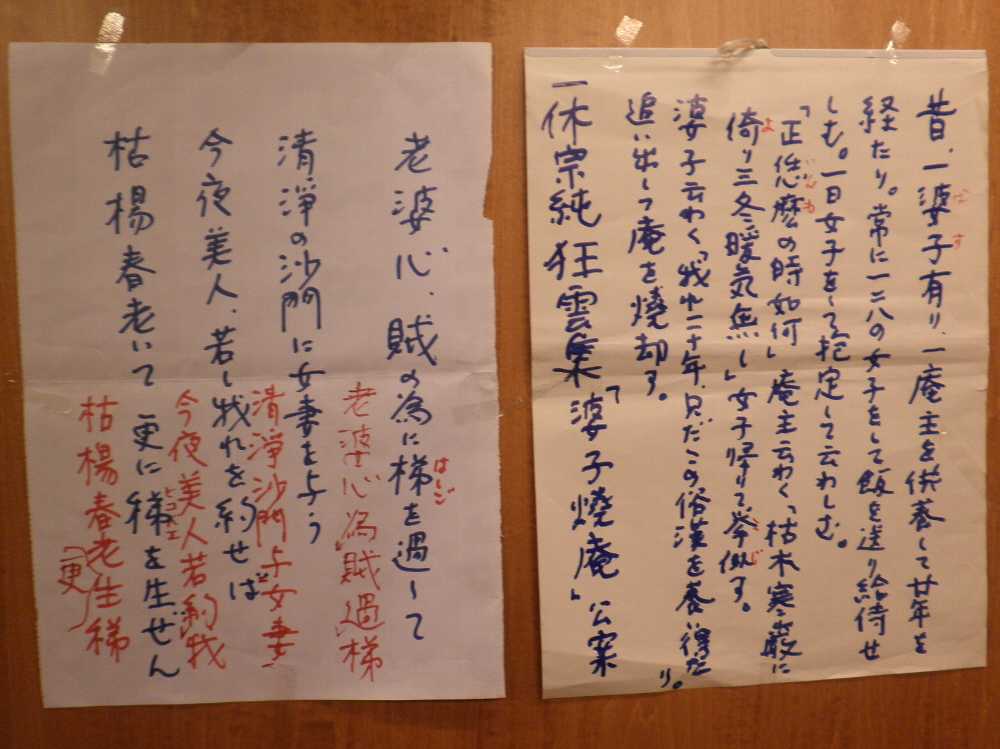 昔、一婆子有り、一庵主を供養して廿年を
ばす
経たり。常に一二八の女子をして飯を送り給侍せ
しむ。一日女子をして抱定して云わしむ。
「正恁麼の時如何」庵主云わく「枯木寒巌に
じんも
よ
倚り三冬暖気無し」女子帰りて挙似す。
こじ
婆子云わく「我れ二十年、只だこの俗漢を養い得たり。
追い出して庵を焼却す。
一休宗純 狂雲集「婆子焼庵」公案
老婆心、賊の為に梯を過して
はしご
清浄の沙門に女妻を与う
今夜美人、若し我れを約せば
枯楊春老いて更に稊を生ぜん
ヒコバエ
老婆心為賊過梯
清淨沙門与女妻
今夜美人若約我
枯楊春老生稊
(更)